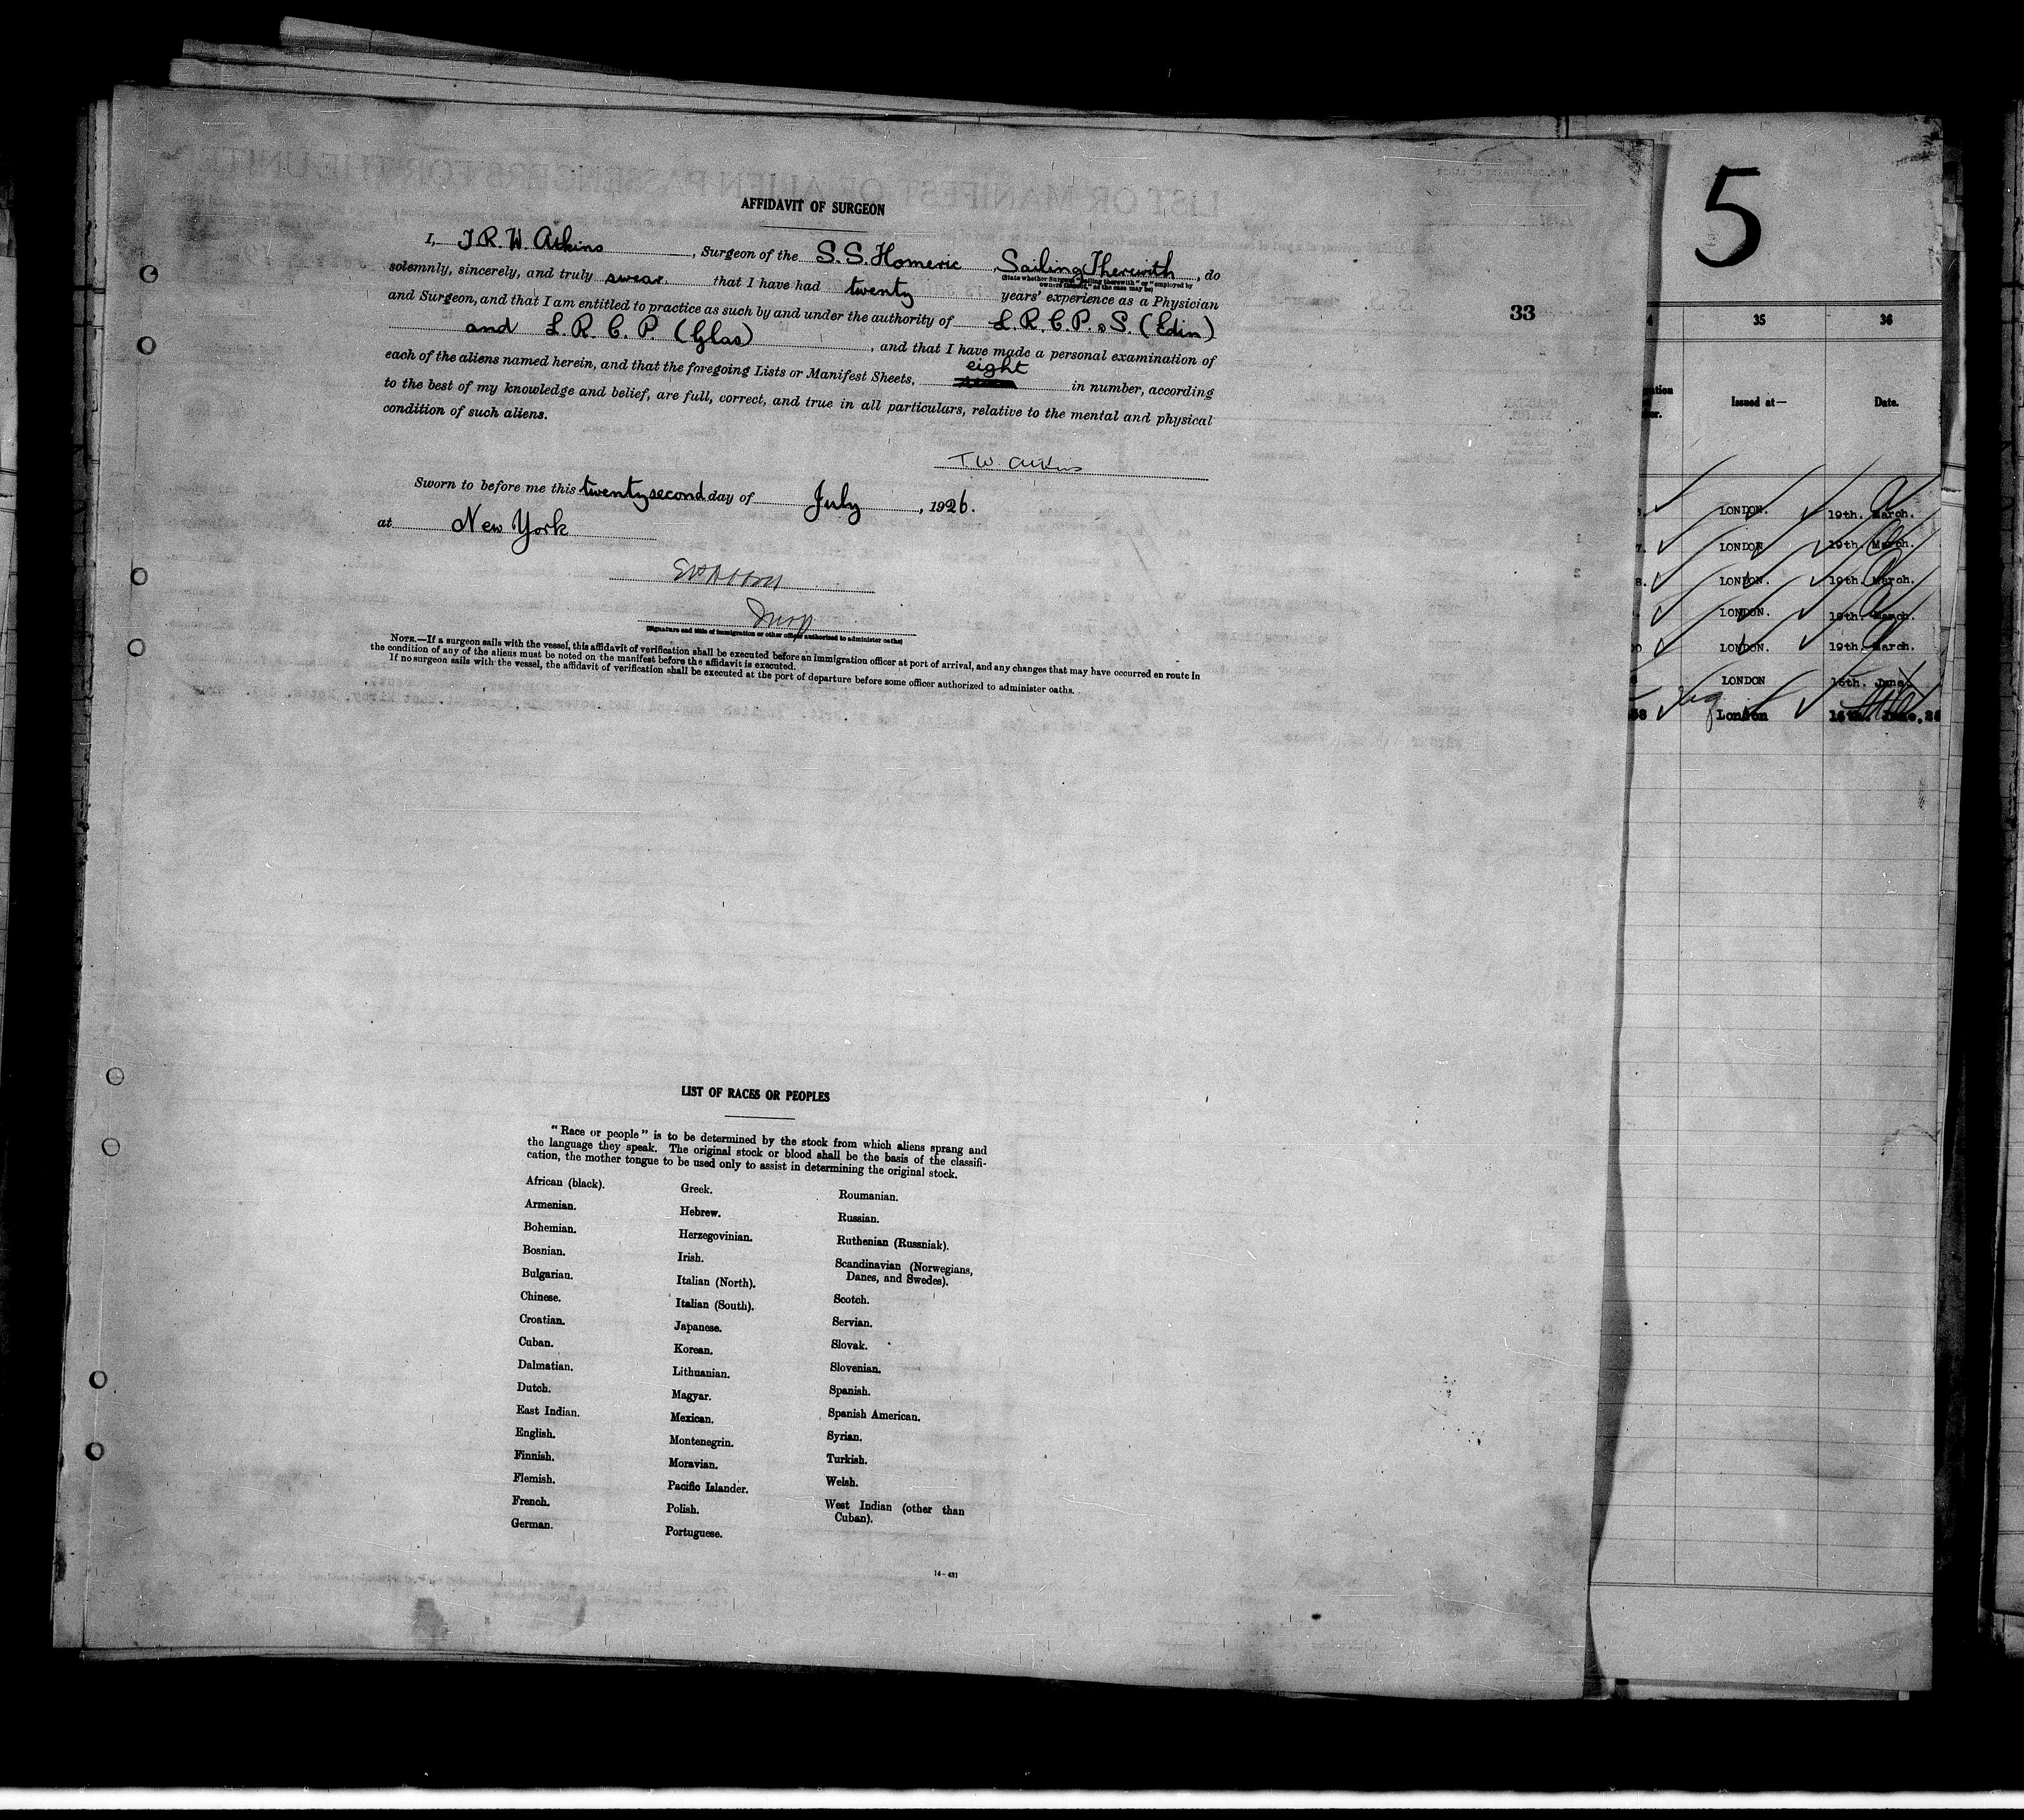 AFFIDAVIT OF SURGEON
I, J.R.W. Atkins, Surgeon of the S.S. Homeric, Sailing Therewith, do
(State whether Surgeon "sailing therewith" or "employed by
owners thereof," as the case may be)
solemnly, sincerely, and truly swear that I have had twenty years' experience as a Physician
and Surgeon, and that I am entitled to practice as such by and under the authority of L.R.C.P. & S. (Edin)
and L.R.C.P. (Glas), and that I have made a personal examination of
each of the aliens named herein, and that the foregoing Lists or Manifest Sheets, eight in number, according
to the best of my knowledge and belief, are full, correct, and true in all particulars, relative to the mental and physical
condition of such aliens.
T W Atkins
Sworn to before me this twenty second day of July, 1926.
at New York
(Signature and title of immigration or other officer authorized to administer oaths)
NOTE.—If a surgeon sails with the vessel, this affidavit of verification shall be executed before an immigration officer at port of arrival, and any changes that may have occurred en route in
the condition of any of the aliens must be noted on the manifest before the affidavit is executed.
If no surgeon sails with the vessel, the affidavit of verification shall be executed at the port of departure before some officer authorized to administer oaths.
33
LIST OF RACES OR PEOPLES
"Race or people" is to be determined by the stock from which aliens sprang and
the language they speak. The original stock or blood shall be the basis of the classifi-
cation, the mother tongue to be used only to assist in determining the original stock.
African (black).
Armenian.
Bohemian.
Bosnian.
Bulgarian.
Chinese.
Croatian.
Cuban.
Dalmatian.
Dutch.
East Indian.
English.
Finnish.
Flemish.
French.
German.
Greek.
Hebrew.
Herzegovinian.
Irish.
Italian (North).
Italian (South).
Japanese.
Korean.
Lithuanian.
Magyar.
Mexican.
Montenegrin.
Moravian.
Pacific Islander.
Polish.
Portuguese.
Roumanian.
Russian.
Ruthenian (Russniak).
Scandinavian (Norwegians,
Danes, and Swedes).
Scotch.
Servian.
Slovak.
Slovenian.
Spanish.
Spanish American.
Syrian.
Turkish.
Welsh.
West Indian (other than
Cuban).
14-431
5
35 36
Issued at— Date.
LONDON. 19th. March.
LONDON 19th. March.
LONDON. 19th. March.
LONDON. 19th. March.
LONDON. 19th. March.
LONDON 16th. June.
London 16th. June, 26